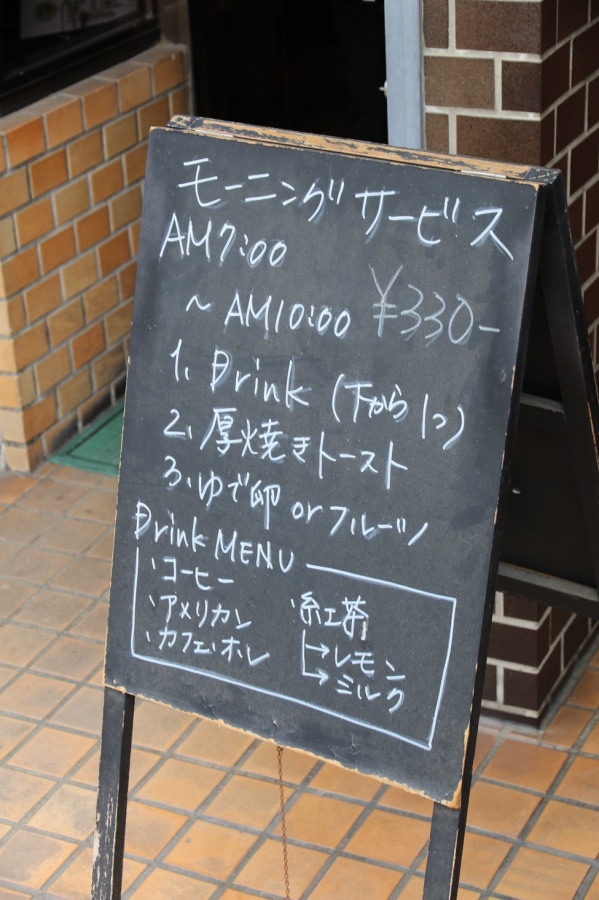 モーニングサービス
AM7:00
~ AM10:00 ¥330-
1. Drink (下から1つ)
2. 厚焼きトースト
3. ゆで卵 or フルーツ
Drink MENU
・コーヒー
・アメリカン
・カフェオレ
・紅茶
→レモン
→ミルク